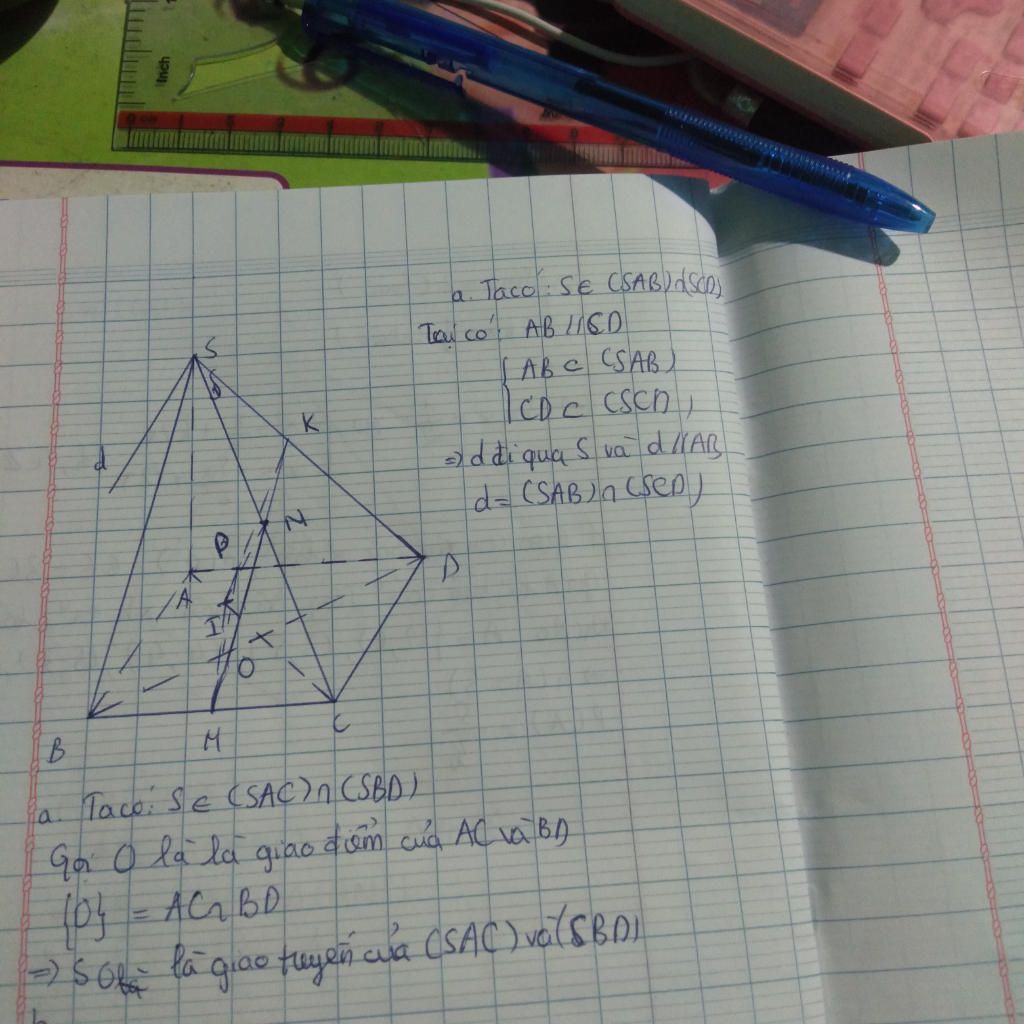 Inch
a. Ta có: S ∈ (SAB) ∩ (SCD)
Lại có: AB // CD
AB ⊂ (SAB)
CD ⊂ (SCD)
=> d đi qua S và d // AB
d = (SAB) ∩ (SCD)
S
K
d
N
P
D
A
I
O
B
M
C
a. Ta có: S ∈ (SAC) ∩ (SBD)
Gọi O là là giao điểm của AC và BD
{O} = AC ∩ BD
=> SO là giao tuyến của (SAC) và (SBD)